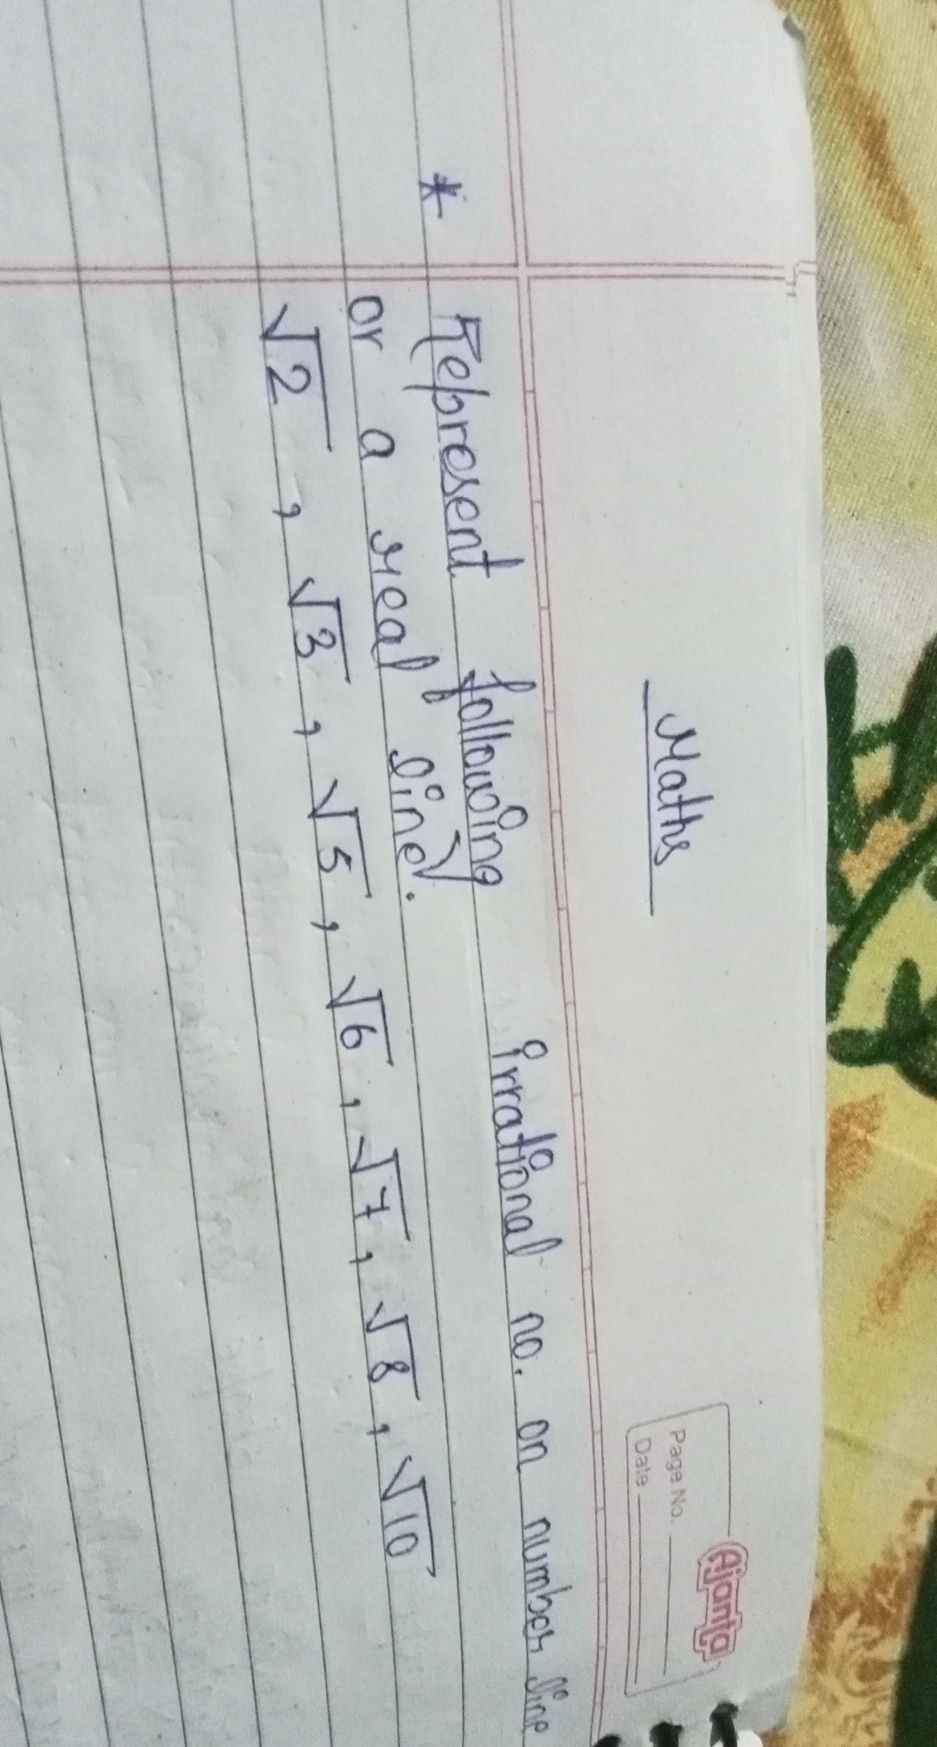 Maths
Ajanta
Page No.
Date
* Represent following irrational no. on number line
or a real line.
√2 , √3 , √5 , √6 , √7 , √8 , √10